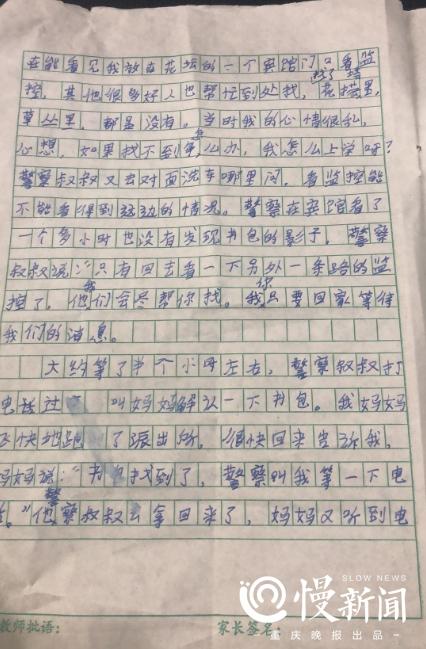 在能看见我放在花坛的一个宾馆门口看监
控，其他很多好人也帮忙到处找，花坛里，
找了
草丛里，都是没有。当时我的心情很乱，
心想，如果找不到怎么办，我怎么上学呀？
警察叔叔又去对面洗车哪里问，看监控能
不能看得到这边的情况。警察在宾馆看了
一个多小时也没有发现书包的影子。警察
叔叔说："只有回去看一下另外一条路的监
控了，我们会尽帮你找。你只要回家等待
我们的消息。
大约等了半个小时左右，警察叔叔打
电话过 叫妈妈确认一下书包。我妈妈
飞快地跑 了派出所。很快回来告诉我，
妈妈说："书包找到了，警察叫我等一下电
"警察叔叔去拿回来了，妈妈又听到电
教师批语：
家长签名：
SLOW NEWS
慢新闻
重庆晚报出品